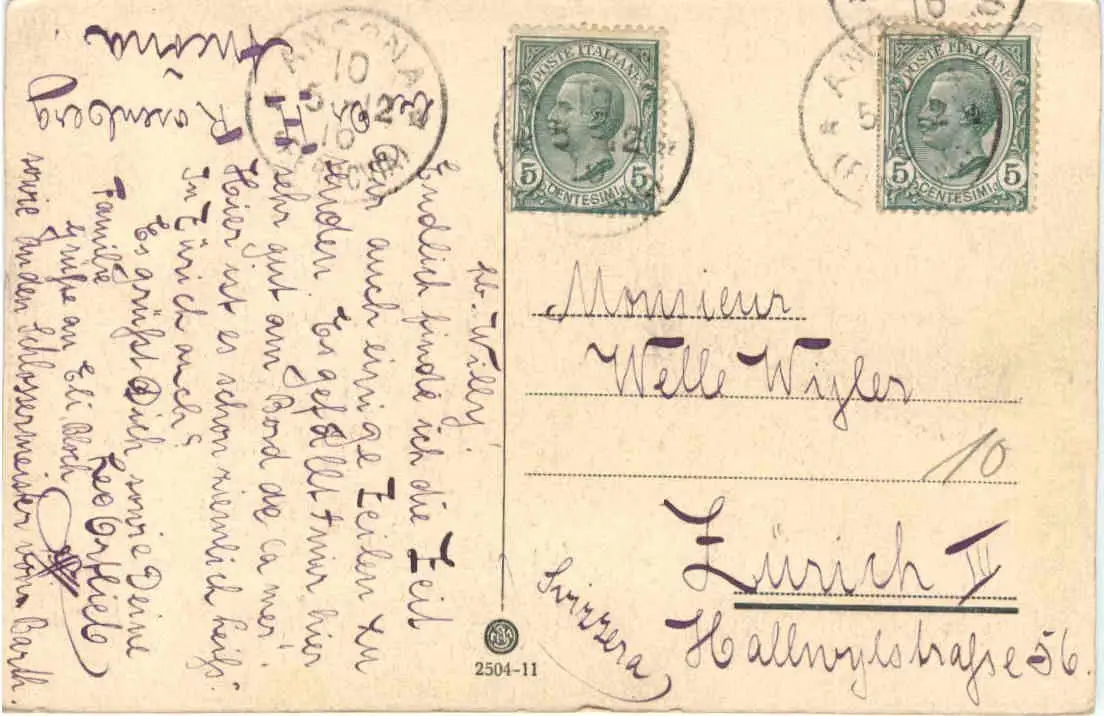 ANCONA
10
5 12
10
POSTE ITALIANE
5 5
CENTESIMI
POSTE ITALIANE
5 5
CENTESIMI
lb. Willy!
Endlich finde ich die Zeit
auch einige Zeilen zu
senden. Es gefällt mir hier
sehr gut am Bord de la mer.
Hier ist es schon ziemlich heiß.
In Zürich auch?
Es grüßt Dich sowie Deine
Familie Leo Ortlieb
Grüße an Eli Bloch
sowie an den Schlossermeister von Barth.
Rosenberg
Ancona
Monsieur
Welle Wyler
10
Zürich III
Hallwylstraße 56.
Svizzera
2504-11